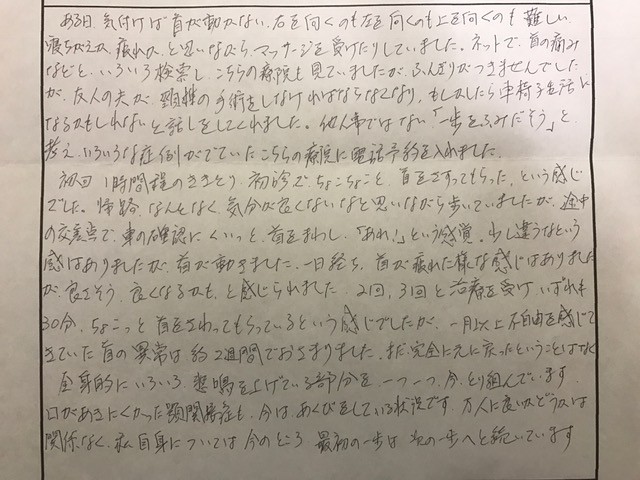 ある日、気付けば首が動かない。右を向くのも左を向くのも上を向くのも難しい
寝ちがえか、疲れか、と思いながら、マッサージを受けたりしていました。ネットで、首の痛み
などと、いろいろ検索し、こちらの療院も見ていましたが、ふんぎりがつきませんでした
が、友人の夫が、頸椎の手術をしなければならなくなり、もしかしたら車椅子生活に
なるかもしれないと話しをしてくれました。他人事ではない「一歩をふみだそう」と
考え、いろいろな症例がでていたこちらの療院に電話予約を入れました。
初回 1時間程のききとり、初診で、ちょこちょこと、首をさすってもらった、という感じ
でした。帰路、なんとなく、気分が良くないなと思いながら歩いていましたが、途中
の交差点で、車の確認に、くいっと、首をまわし、「あれ!」という感覚。少し違うなという
感はありましたが、首が動きました。一日経ち、首が疲れた様な感じはありました
が、良さそう、良くなるかも、と感じられました。2回、3回と治療を受け、いずれも
30分、ちょこっと首をさわってもらっているという感じでしたが、一月以上不自由を感じて
きていた首の異常は約2週間でおさまりました。まだ完全に元に戻ったということはなく
全身的にいろいろ、悲鳴を上げている部分を、一つ一つ、今、とり組んでいます
口があきにくかった顎関節症も、今はあくびをしている状況です。万人に良いかどうかは
関係なく、私自身については今のところ 最初の一歩は次の一歩へと続いています